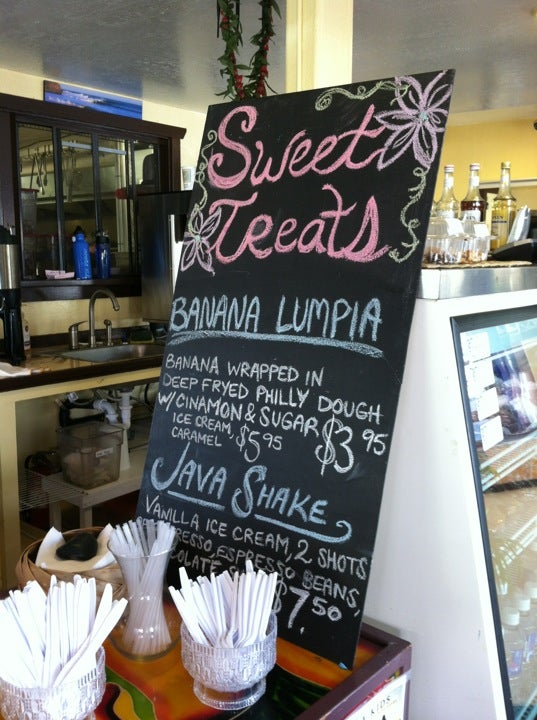 Sweet
Treats
BANANA LUMPIA
BANANA WRAPPED IN
DEEP FRYED PHILLY DOUGH
W/ CINAMON & SUGAR $3.95
ICE CREAM,
CARAMEL $5.95
JAVA SHAKE
VANILLA ICE CREAM, 2 SHOTS
ESPRESSO BEANS,
$7.50
KIDS